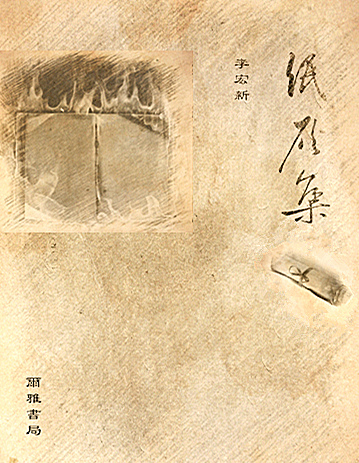 纸雁集
李宏新
爾雅書局